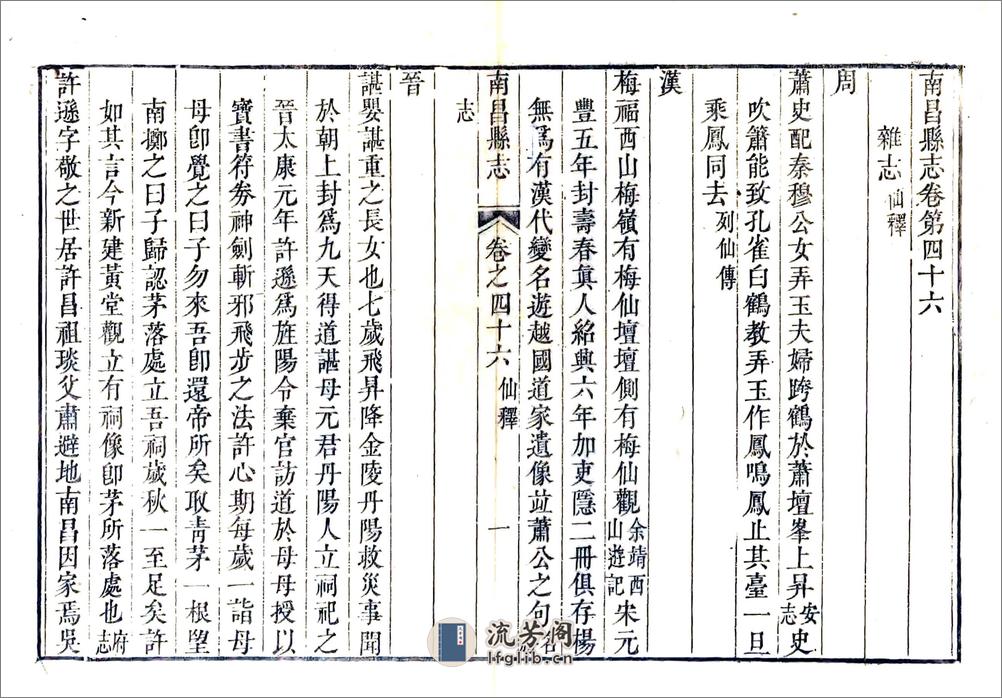 南昌縣志卷第四十六
雜志 仙釋
周
蕭史配秦穆公女弄玉夫婦跨鶴於蕭壇峯上昇安志史
吹簫能致孔雀白鶴教弄玉作鳳鳴鳳止其臺一旦
乘鳳同去列仙傳
漢
梅福西山梅嶺有梅仙壇壇側有梅仙觀余靖西山遊記宋元
豐五年封壽春眞人紹興六年加吏隱二冊俱存楊
無爲有漢代變名遊越國道家遺像竝蕭公之句
志
南昌縣志 卷之四十六 仙釋 一
晉
諶嬰諶重之長女也七歲飛昇降金陵丹陽救災事聞
於朝上封爲九天得道諶母元君丹陽人立祠祀之
晉太康元年許遜爲旌陽令棄官訪道於母母授以
寶書符劵神劍斬邪飛步之法許心期每歲一詣母
母卽覺之曰子勿來吾卽還帝所矣取靑茅一根望
南擲之曰子歸認茅落處立吾祠歲秋一至足矣許
如其言今新建黃堂觀立有祠像卽茅所落處也府志
許遜字敬之世居許昌祖琰父肅避地南昌因家焉吳
流芳阁
lfglib.cn